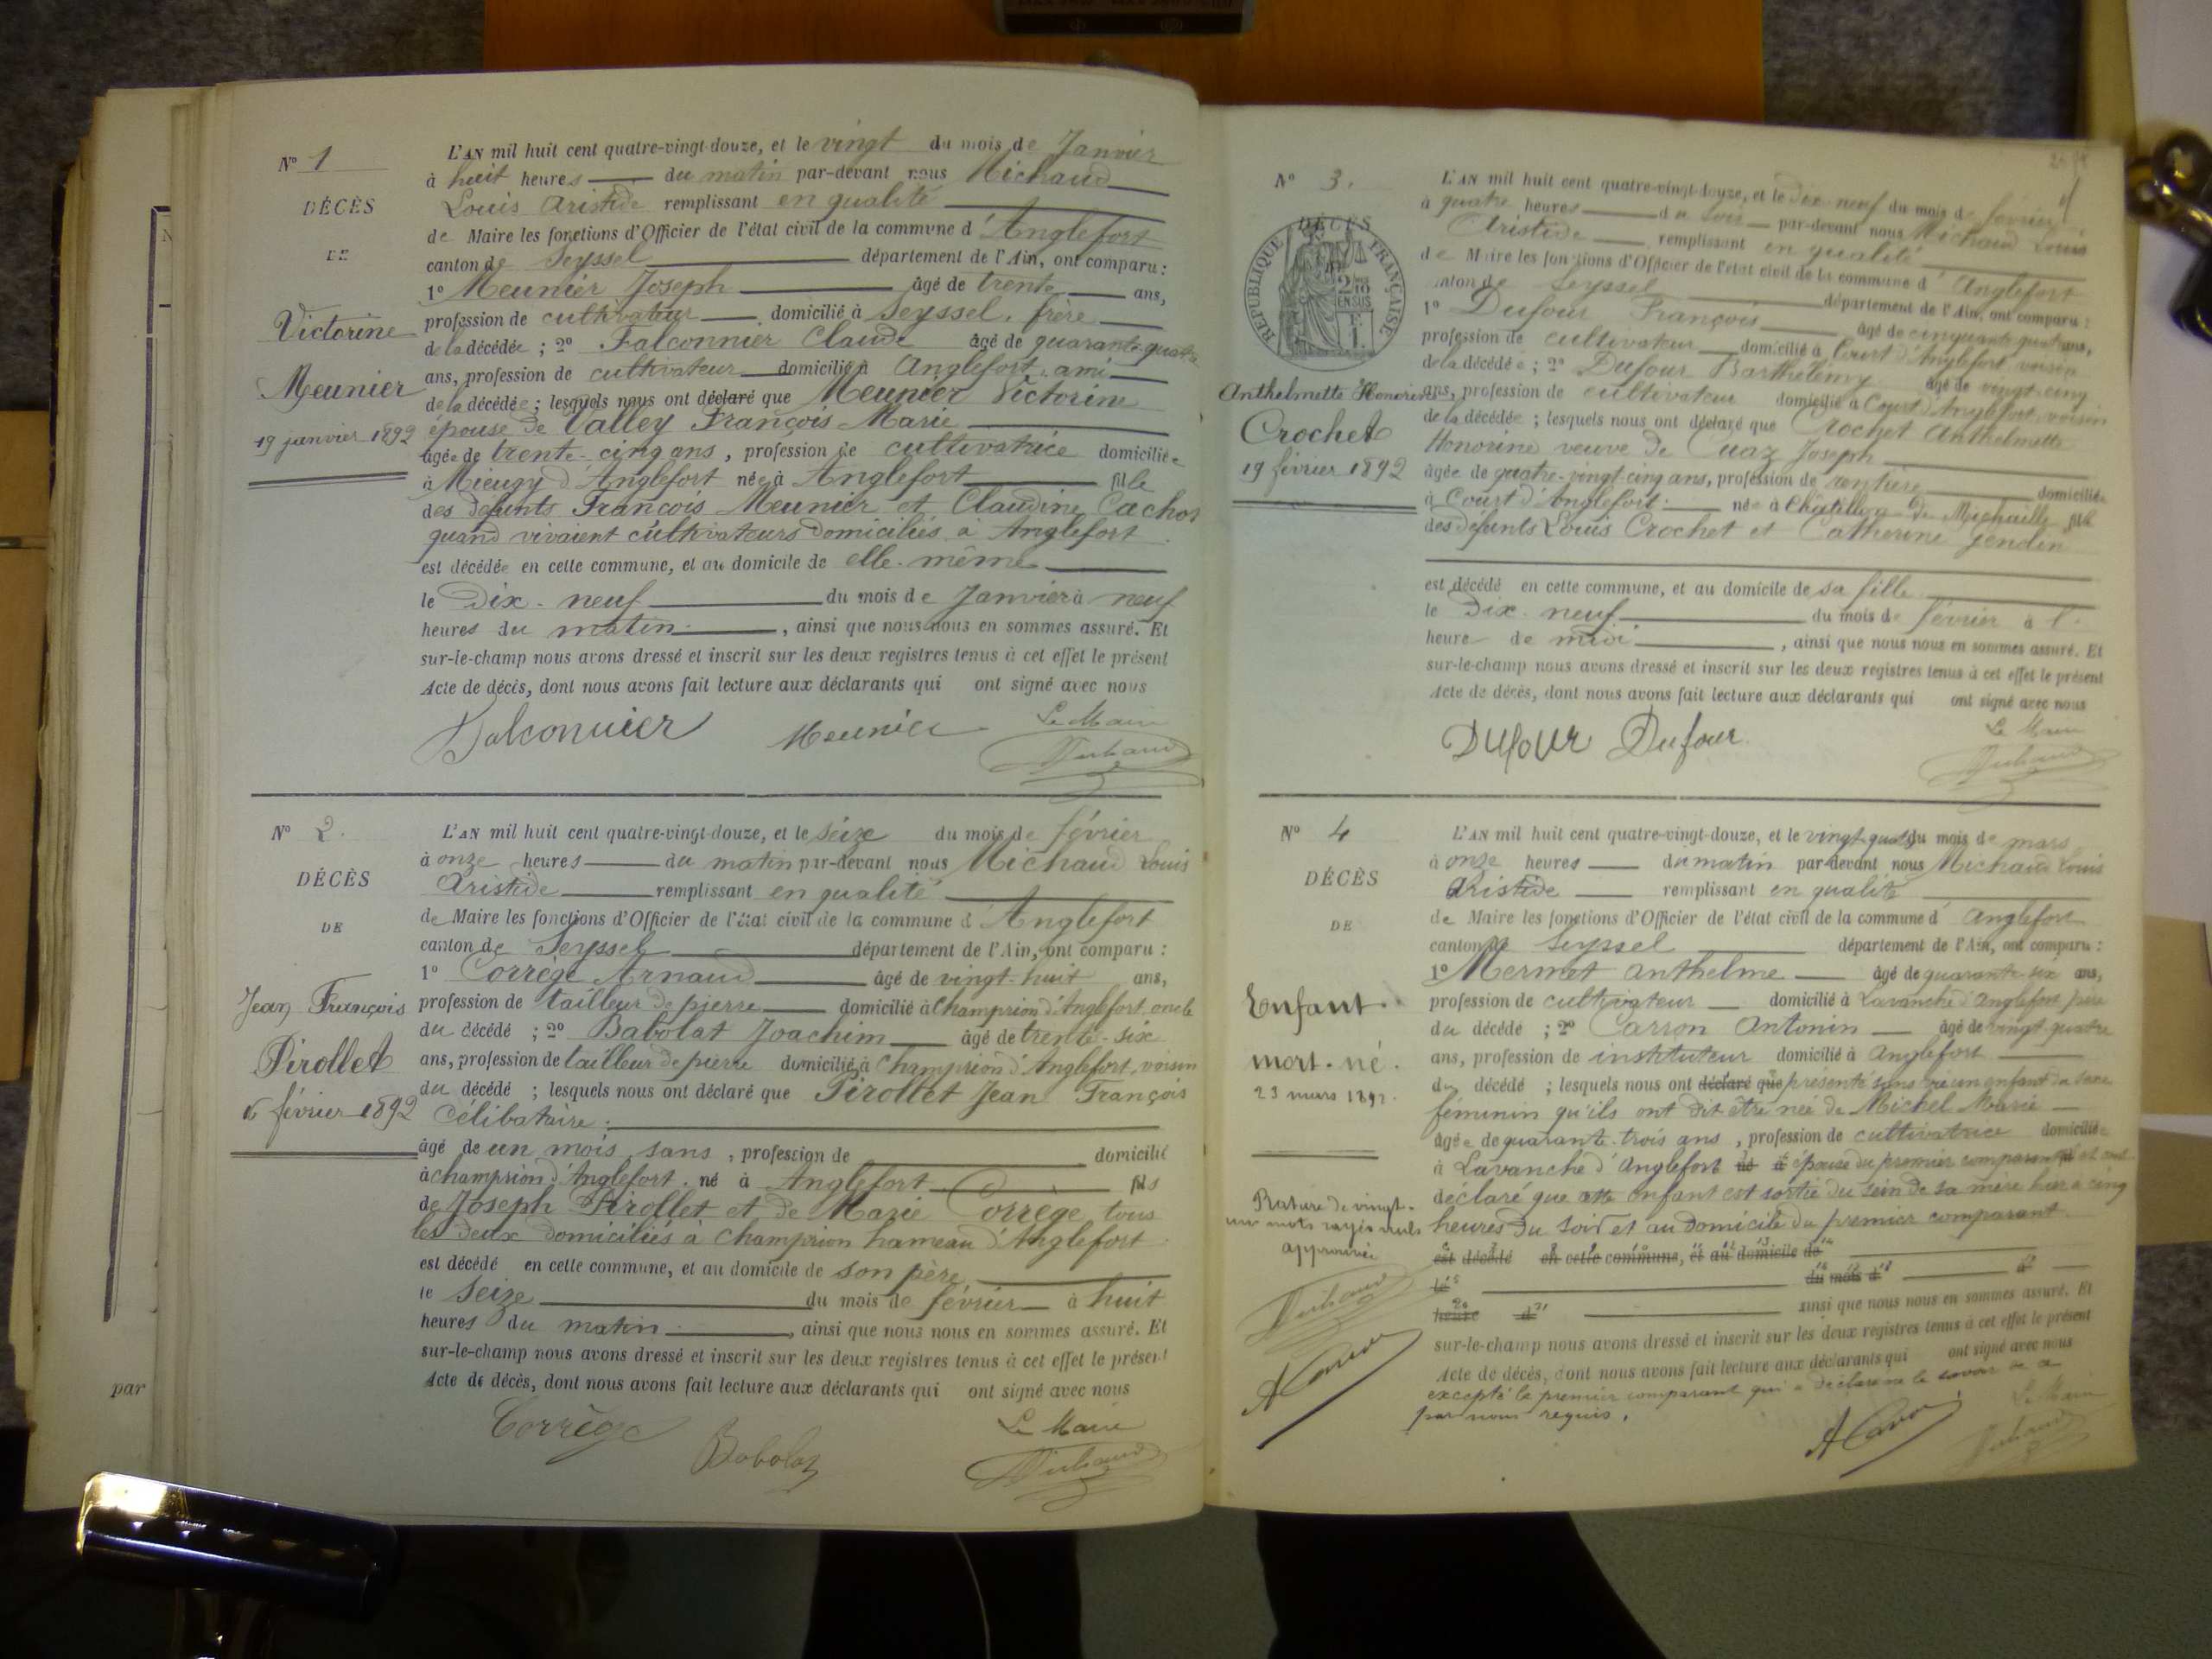 N° 1
DÉCÈS
DE
Victorine
Meunier
19 janvier 1892
L'AN mil huit cent quatre-vingt-douze, et le vingt du mois de Janvier
à huit heures du matin par-devant nous Michaud
Louis Aristide remplissant en qualité
de Maire les fonctions d'Officier de l'état civil de la commune d'Anglefort
canton de Seyssel département de l'Ain, ont comparu :
1° Meunier Joseph âgé de trente ans,
profession de cultivateur domicilié à Seyssel, frère
de la décédée ; 2° Falconnier Claude âgé de quarante-quatre
ans, profession de cultivateur domicilié à Anglefort, ami
de la décédée ; lesquels nous ont déclaré que Meunier Victorine
épouse de Valley François Marie
âgée de trente-cinq ans, profession de cultivatrice domiciliée
à Mieugy d'Anglefort née à Anglefort fille
des défunts François Meunier et Claudine Cachot
quand vivaient cultivateurs domiciliés à Anglefort
est décédée en cette commune, et au domicile de elle-même
le Dix-neuf du mois de Janvier à neuf
heures du matin, ainsi que nous nous en sommes assuré. Et
sur-le-champ nous avons dressé et inscrit sur les deux registres tenus à cet effet le présent
Acte de décès, dont nous avons fait lecture aux déclarants qui ont signé avec nous
Falconnier Meunier Le Maire
Michaud
N° 2.
DÉCÈS
DE
Jean François
Pirollet
16 février 1892
L'AN mil huit cent quatre-vingt-douze, et le seize du mois de février
à onze heures du matin par-devant nous Michaud Louis
Aristide remplissant en qualité
de Maire les fonctions d'Officier de l'état civil de la commune d'Anglefort
canton de Seyssel département de l'Ain, ont comparu :
1° Corrège Arnaud âgé de vingt-huit ans,
profession de tailleur de pierre domicilié à Champrion d'Anglefort, oncle
du décédé ; 2° Babolat Joachim âgé de trente-six
ans, profession de tailleur de pierre domicilié à Champrion d'Anglefort, voisin
du décédé ; lesquels nous ont déclaré que Pirollet Jean François
célibataire
âgé de un mois, sans, profession de domicilié
à champrion d'Anglefort. né à Anglefort fils
de Joseph Pirollet et de Marie Corrège, tous
les deux domiciliés à Champrion hameau d'Anglefort
est décédé en cette commune, et au domicile de son père
le Seize du mois de février à huit
heures du matin, ainsi que nous nous en sommes assuré. Et
sur-le-champ nous avons dressé et inscrit sur les deux registres tenus à cet effet le présent
Acte de décès, dont nous avons fait lecture aux déclarants qui ont signé avec nous
Corrège Babolat Le Maire
Michaud
par
N° 3.
DÉCÈS
RÉPUBLIQUE FRANÇAISE
Anthelmette Honorine
Crochet
19 février 1892
L'AN mil huit cent quatre-vingt-douze, et le dix-neuf du mois de février
à quatre heures du soir par-devant nous Michaud Louis
Aristide remplissant en qualité
de Maire les fonctions d'Officier de l'état civil de la commune d'Anglefort
canton de Seyssel département de l'Ain, ont comparu :
1° Dufour François âgé de cinquante quatre ans,
profession de cultivateur domicilié à Court d'Anglefort, voisin
de la décédée ; 2° Dufour Barthélémy âgé de vingt-cinq
ans, profession de cultivateur domicilié à Court d'Anglefort, voisin
de la décédée ; lesquels nous ont déclaré que Crochet Anthelmette
Honorine veuve de Cuaz Joseph
âgée de quatre-vingt-cinq ans, profession de rentière domiciliée
à Court d'Anglefort née à Châtillon de Michaille fille
des défunts Louis Crochet et Catherine
est décédé en cette commune, et au domicile de sa fille
le Dix-neuf du mois de février à l'
heure de midi, ainsi que nous nous en sommes assuré. Et
sur-le-champ nous avons dressé et inscrit sur les deux registres tenus à cet effet le présent
Acte de décès, dont nous avons fait lecture aux déclarants qui ont signé avec nous
Dufour Dufour. Le Maire
Michaud
N° 4
DÉCÈS
DE
Enfant
mort-né.
23 mars 1892.
Rature de vingt-
un mots rayés nuls
approuvée
Michaud
A Carron
L'AN mil huit cent quatre-vingt-douze, et le vingt-quatre du mois de mars
à onze heures du matin par-devant nous Michaud Louis
Aristide remplissant en qualité
de Maire les fonctions d'Officier de l'état civil de la commune d'Anglefort
canton de Seyssel département de l'Ain, ont comparu :
1° Mermet Anthelme âgé de quarante-six ans,
profession de cultivateur domicilié à Lavanche d'Anglefort père
du décédé ; 2° Carron Antonin âgé de vingt-quatre
ans, profession de instituteur domicilié à Anglefort
du décédé ; lesquels nous ont déclaré que présenté sans vie un enfant du sexe
féminin qu'ils ont dit être né de Michel Marie
âgée de quarante-trois ans, profession de cultivatrice domiciliée
à Lavanche d'Anglefort né à épouse du premier comparant et ont
déclaré que cette enfant est sortie du sein de sa mère hier à cinq
heures du soir et au domicile du premier comparant
est décédé en cette commune, et au domicile de
le du mois d à
heure d ainsi que nous nous en sommes assuré. Et
sur-le-champ nous avons dressé et inscrit sur les deux registres tenus à cet effet le présent
Acte de décès, dont nous avons fait lecture aux déclarants qui ont signé avec nous
excepté le premier comparant qui a déclaré ne le savoir de ce
par nous requis.
A Carron Le Maire
Michaud